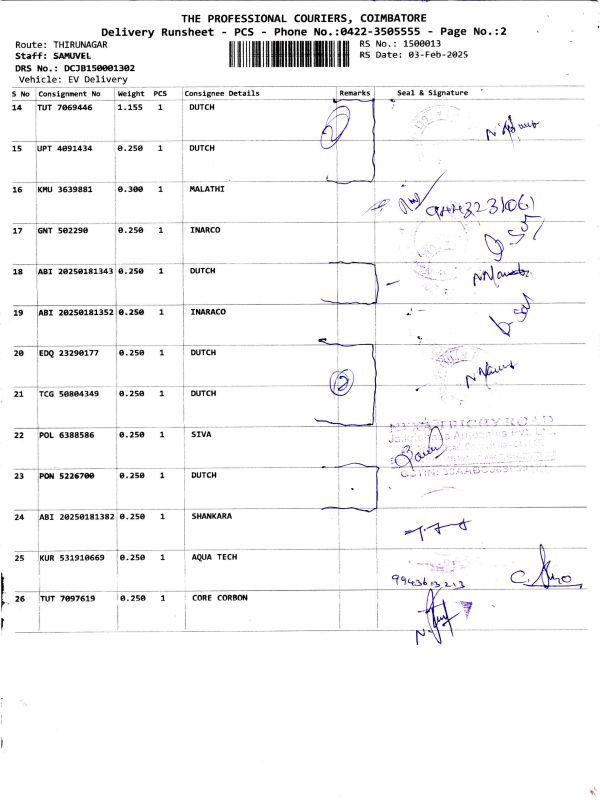 THE PROFESSIONAL COURIERS, COIMBATORE
Delivery Runsheet - PCS - Phone No.:0422-3505555 - Page No.:2
Route: THIRUNAGAR RS No.: 1500013
Staff: SAMUVEL RS Date: 03-Feb-2025
DRS No.: DCJB150001302
Vehicle: EV Delivery
S No Consignment No Weight PCS Consignee Details Remarks Seal & Signature
14 TUT 7069446 1.155 1 DUTCH 2
15 UPT 4091434 0.250 1 DUTCH
16 KMU 3639881 0.300 1 MALATHI
17 GNT 502290 0.250 1 INARCO
18 ABI 20250181343 0.250 1 DUTCH
19 ABI 20250181352 0.250 1 INARACO
20 EDQ 23290177 0.250 1 DUTCH
21 TCG 50804349 0.250 1 DUTCH 2
22 POL 6388586 0.250 1 SIVA
TRICHY ROAD
23 PON 5226700 0.250 1 DUTCH
24 ABI 20250181382 0.250 1 SHANKARA
25 KUR 531910669 0.250 1 AQUA TECH
9943613213
26 TUT 7097619 0.250 1 CORE CORBON